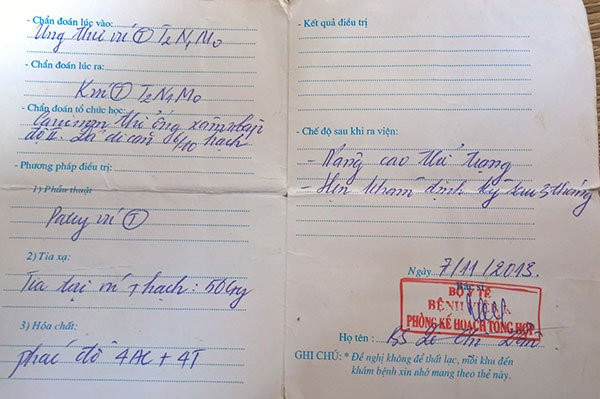 - Chẩn đoán lúc vào:
Ung thư vú (T) T2N1M0
- Chẩn đoán lúc ra:
Km (T) T2N1M0
- Chẩn đoán tổ chức học:
Carcinom thể ống xâm nhập
độ II. Đã di căn 6/10 hạch
- Phương pháp điều trị:
1) Phẫu thuật
Patey vú (T)
2) Tia xạ:
Tia tại vú + hạch: 50Gy
3) Hóa chất:
phác đồ 4AC + 4T
- Kết quả điều trị
- Chế độ sau khi ra viện:
- Nâng cao thể trạng
- Hẹn khám định kỳ sau 3 tháng
Ngày 7/11/2013.
BỘ Y TẾ
BỆNH
PHÒNG KẾ HOẠCH TỔNG HỢP
Họ tên: BS
GHI CHÚ: * Đề nghị không để thất lạc, mỗi khi đến
khám bệnh xin nhớ mang theo thẻ này.